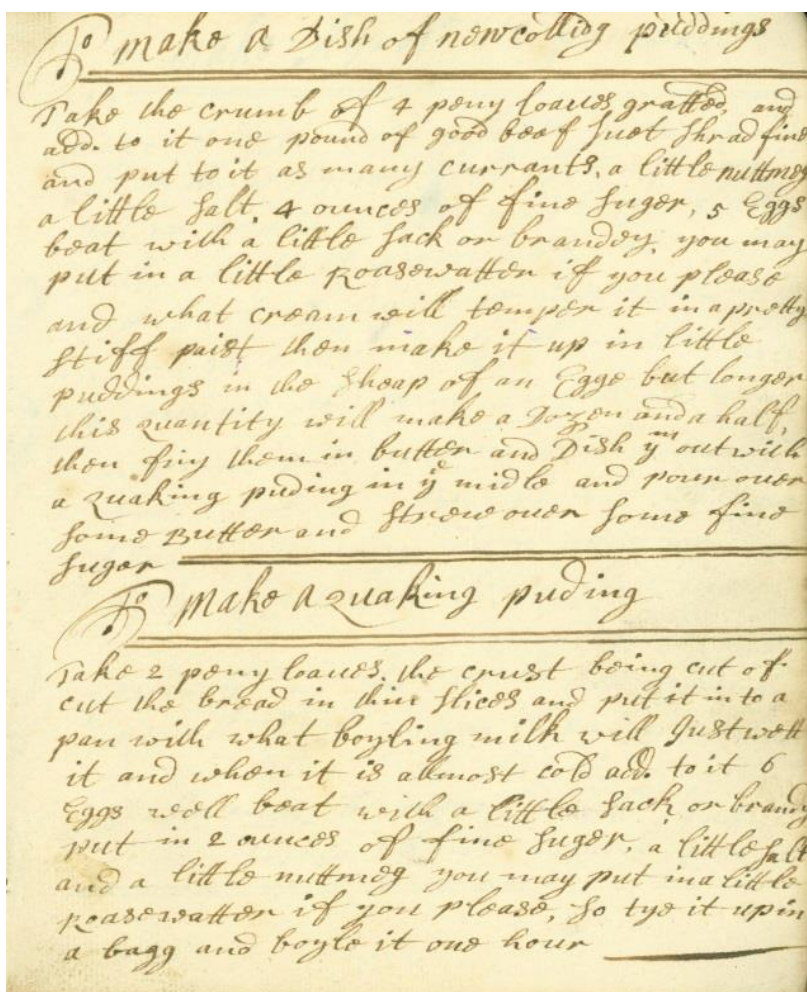 To make a Dish of newcollidg puddings
Take the crumb of 4 peny loaves gratted, and
add. to it one pound of good beef suet shrad fine
and put to it as many currants, a little nuttmeg
a little salt, 4 ounces of fine suger, 5 Eggs
beat with a little sack or brandey, you may
put in a little Roasewatter if you please
and what cream will temper it in a pretty
stiff paist then make it up in little
puddings in the sheap of an Egge but longer
this quantity will make a Dozen and a half,
then friy them in butter and Dish ym out with
a quaking puding in ye midle and pour over
some Butter and strew over some fine
suger
To make A quaking puding
Take 2 peny loaves, the crust being cut of
cut the bread in thin slices and put it in to a
pan with what boyling milk will Just wett
it and when it is allmost cold add. to it 6
Eggs well beat with a little sack or brandy
put in 2 ounces of fine suger, a little salt
and a little nuttmeg you may put in a little
Roasewatter if you please, so tye it up in
a bagg and boyle it one hour